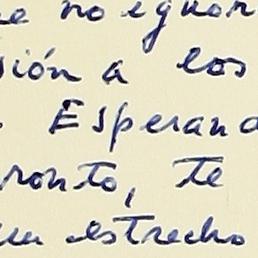 e no egnor
sión a los
. Esperan
ronto, te
un estrecho